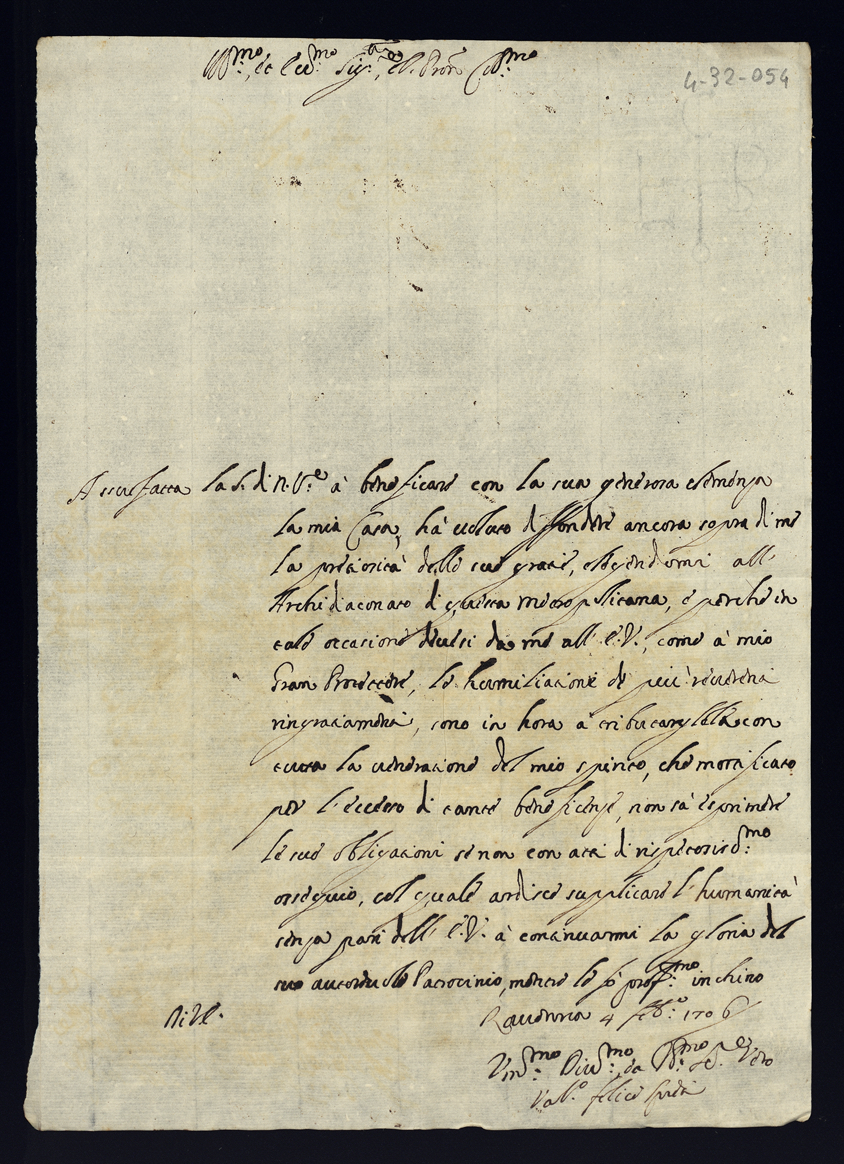 Ill.mo, et Ecc.mo Sig.re, e P.ron Col.mo
4-32-054
Assuefatta la S. di N. S.re à beneficare con la sua generosa clemenza
la mia Casa, hà voluto diffondere ancora sopra di me
la pretiosità delle sue gratie, eleggendomi all'
Archidiaconato di questa Metropolitana, e perche in
tale occasione devesi da me all' E. V., come à mio
Gran Protettore, le humiliationi de più reverenti
ringratiamenti, sono in hora à tributargliele con
tutta la veneratione del mio spirito, che mortificato
per l'eccesso di tante beneficenze, non sà esprimere
le sue obligationi se non con atti di rispetosis.mo
ossequio, col quale ardisce supplicare l'humanità
senza pari dell' E. V. à continuarmi la gloria del
suo autorevole Patrocinio, mentre le fò prof.mo inchino
Di V. E.
Ravenna 4 Feb.o 1706
Um.mo Div.mo, ed Obl.mo Ser.re Vero
Felice